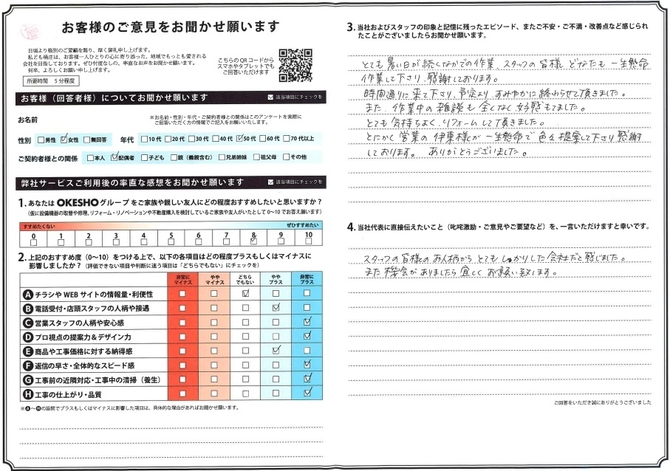 お客様のご意見をお聞かせ願います
日頃より格別のご愛顧を賜り、厚く御礼申し上げます。
何卒、よろしくお願い申し上げます。
所要時間 5分程度
こちらのQRコードから
スマホやタブレットでも
ご回答いただけます
お客様（回答者様）についてお聞かせ願います
該当項目にチェックを
お名前
※お名前・性別・年代・ご契約者様との関係はこのアンケートを実際に
ご回答いただく方の情報でご記入をお願いします。
性別 男性 女性 無回答 年代 10代 20代 30代 40代 50代 60代 70代以上
ご契約者様との関係 本人 配偶者 子ども 親（義親含む） 兄弟姉妹 祖父母 その他
弊社サービスご利用後の率直な感想をお聞かせ願います
該当項目にチェックを
1.あなたは OKESHOグループ をご家族や親しい友人にどの程度おすすめしたいと思いますか？
（仮に設備機器の取替や修理、リフォーム・リノベーションや不動産購入を検討しているご家族や友人がいたとして0〜10でお答え願います）
すすめたくない ぜひすすめたい
0 1 2 3 4 5 6 7 8 9 10
2.上記のおすすめ度（0〜10）をつける上で、以下の各項目はどの程度プラスもしくはマイナスに
影響しましたか？（評価できない項目や判断に迷う項目は「どちらでもない」にチェックを）
非常にマイナス ややマイナス どちらでもない ややプラス 非常にプラス
A チラシやWEBサイトの情報量・利便性
B 電話受付・店頭スタッフの人柄や接遇
C 営業スタッフの人柄や安心感
D プロ視点の提案力＆デザイン力
E 商品や工事価格に対する納得感
F 返信の早さ・全体的なスピード感
G 工事前の近隣対応・工事中の清掃（養生）
H 工事の仕上がり・品質
※A〜Hの設問でプラスもしくはマイナスに影響した項目は、具体的な理由があればお聞かせ願います。
3.当社およびスタッフの印象と記憶に残ったエピソード、またご不安・ご不満・改善点など感じられ
たことがございましたらお聞かせ願います。
とても暑い日が続くなかでの作業、スタッフの皆様、どなたも一生懸命
作業して下さり、感謝しております。
時間通りに来て下さり、予定よりすみやかに終わらせて頂きました。
また、作業中の雑談も全くなく好感もてました。
とても気持ちよくリフォームして頂きました。
とにかく営業の伊東様が一生懸命で色々提案して下さり感謝
しております。ありがとうございました。
4.当社代表に直接伝えたいこと（叱咤激励・ご意見やご要望など）を、一言いただけますと幸いです。
スタッフの皆様のお人柄からとてもしっかりした会社だと感じました。
また機会がありましたら宜しくお願い致します。
ご回答をいただき誠にありがとうございました